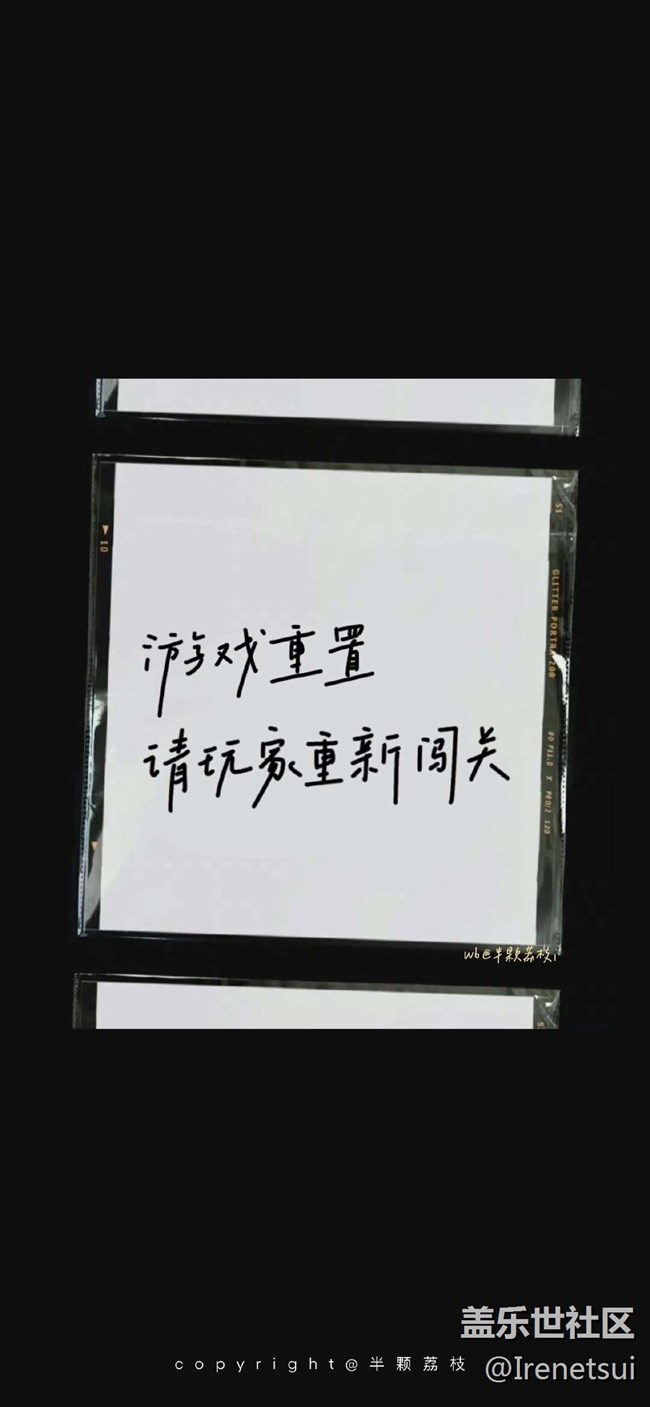 51
10
GLITTER PORTRA 200
游戏重置
请玩家重新闯关
wb@半颗荔枝i
盖乐世社区
copyright@半颗荔枝
@Irenetsui